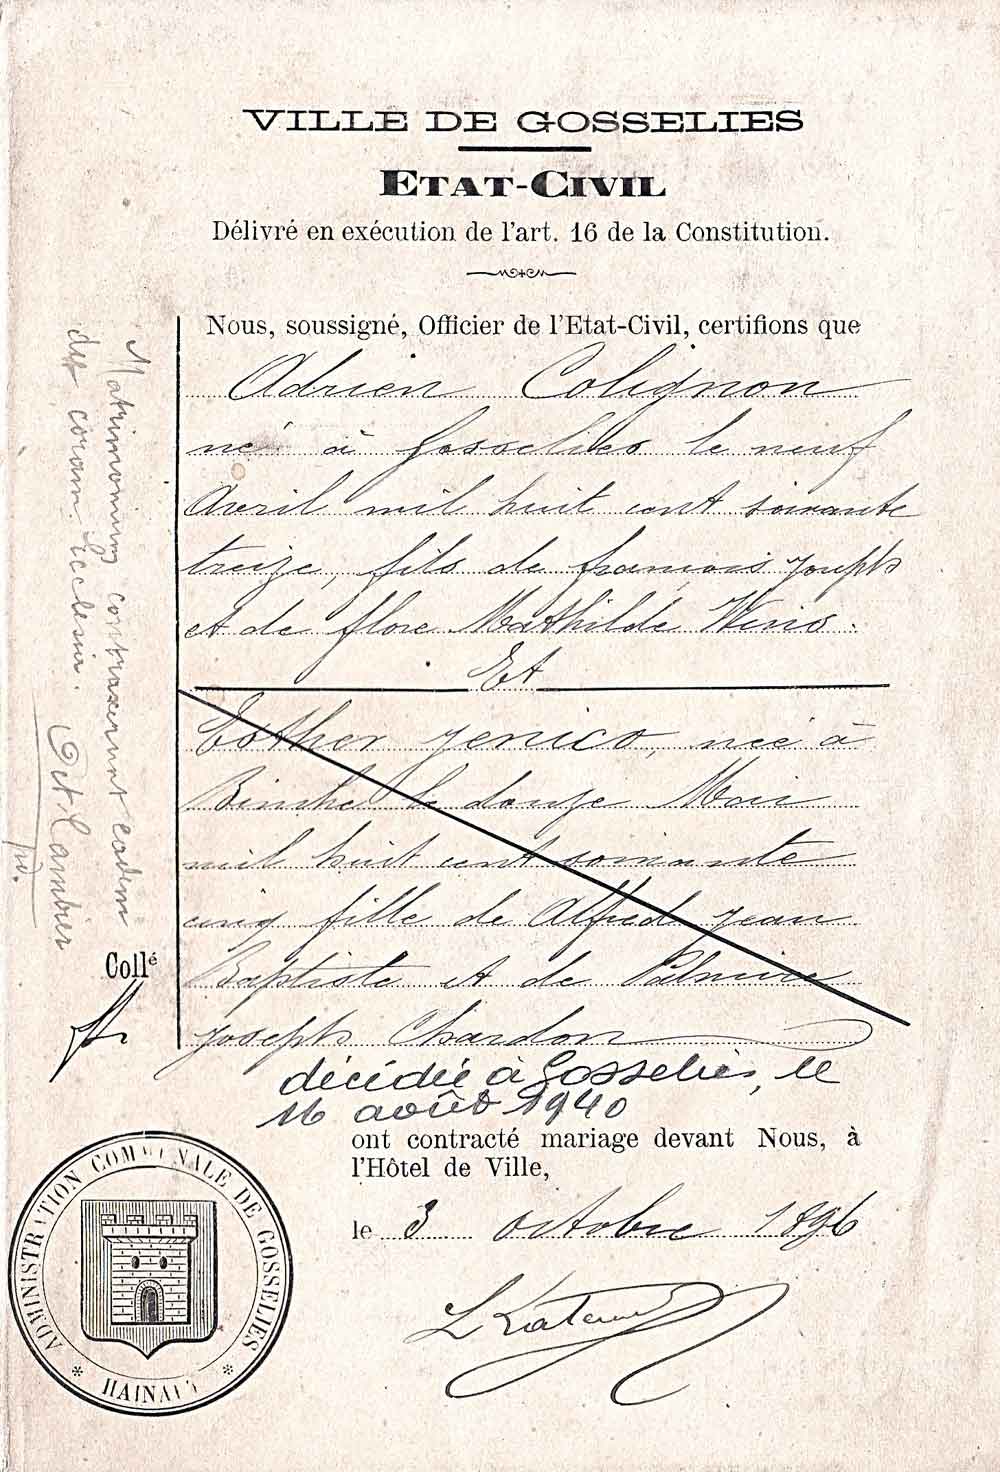 VILLE DE GOSSELIES
ETAT-CIVIL
Délivré en exécution de l'art. 16 de la Constitution.
Nous, soussigné, Officier de l'Etat-Civil, certifions que
Adrien Colignon
né à Gosselies le neuf
Avril mil huit cent soixante
treize, fils de françois Joseph
et de flore Mathilde Wins.
Et
Esther Jenico, née à
Binche le douze Mai
mil huit cent soixante
cinq fille de Alfred Jean
Baptiste et de Palmire
Joseph Chardon
décédée à Gosselies, le
16 août 1940
ont contracté mariage devant Nous, à
l'Hôtel de Ville,
le 3 octobre 1896
Matrimonium contraxerunt eadem
die coram Ecclesia.
Cambier
Collé
ADMINISTRATION COMMUNALE DE GOSSELIES
* HAINAUT *